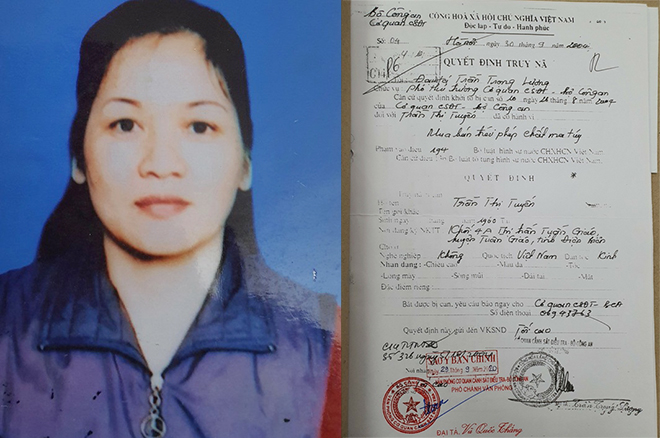 Bộ Công an
Cơ quan CSĐT
CỘNG HOÀ XÃ HỘI CHỦ NGHĨA VIỆT NAM
Độc lập - Tự do - Hạnh phúc
Số 04
Hà Nội ngày 30 tháng 9 năm 2004
QUYẾT ĐỊNH TRUY NÃ
Đại tá Trần Trọng Lượng
Chức vụ: Phó thủ trưởng Cơ quan CSĐT - Bộ Công an
Căn cứ quyết định khởi tố bị can số 10 ngày 8 năm 2004
của Cơ quan CSĐT - Bộ Công an
đối với Trần Thị Tuyến về hành vi
Mua bán trái phép chất ma túy
Phạm vào điều 194 Bộ luật hình sự nước CHXHCN Việt Nam.
Căn cứ điều Bộ luật tố tụng hình sự nước CHXHCN Việt Nam.
QUYẾT ĐỊNH
Họ tên Trần Thị Tuyến
Tên gọi khác
Sinh ngày 1960
Nơi đăng ký NKTT Khối 4A Thị trấn Tuần Giáo,
huyện Tuần Giáo, tỉnh Điện Biên
Chỗ ở
Nghề nghiệp Không Quốc tịch Việt Nam Dân tộc Kinh
Nhận dạng: - Chiều cao - Màu da - Tóc
- Lông mày - Sống mũi - Dái tai - Mắt
Đặc điểm riêng:
Bắt được bị can, yêu cầu báo ngay cho Cơ quan CSĐT - BCA
Số điện thoại 069 43763
Quyết định này gửi đến VKSND Tối cao
CƠ QUAN CẢNH SÁT ĐIỀU TRA - BỘ CÔNG AN
SAO Y BẢN CHÍNH
Nơi nhận ngày 29 tháng 9 năm
PHÓ CHÁNH VĂN PHÒNG
Trần Trọng Lượng
ĐẠI TÁ Vũ Quốc Thắng